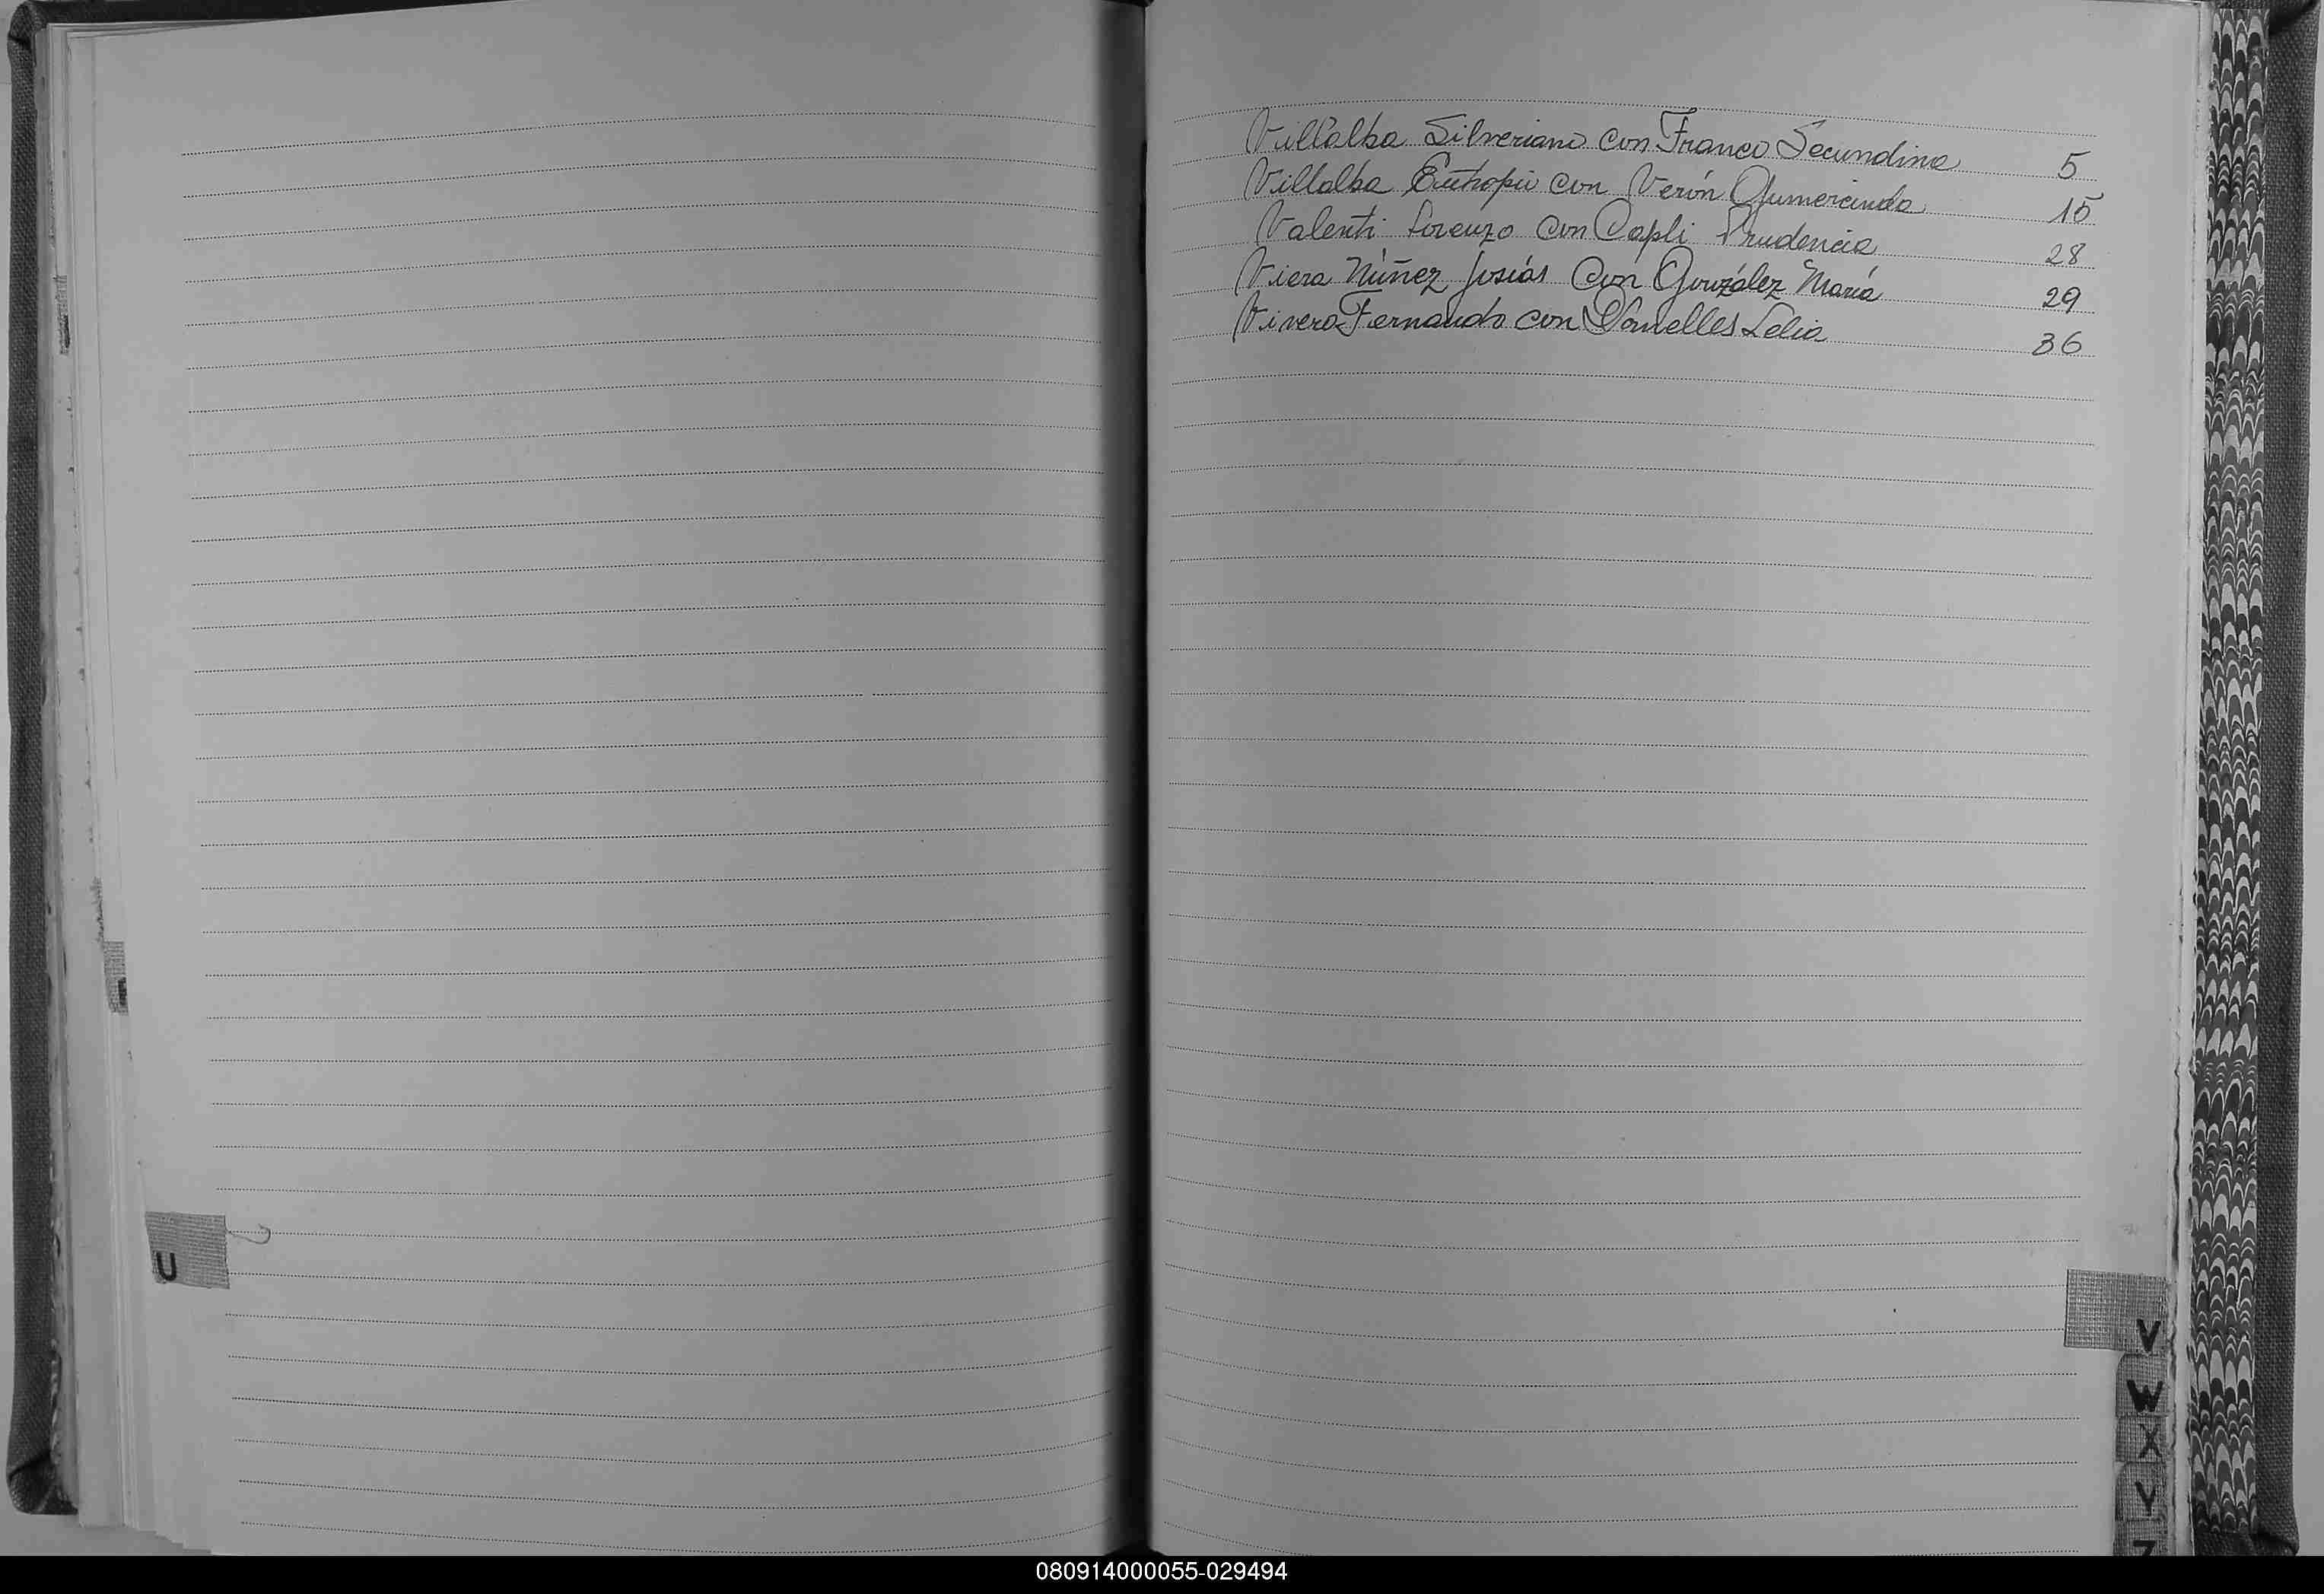 Villalba Silveriano con Franco Secundina 5
Villalba Eutropio con Verón Gumercinda 15
Valenti Lorenzo con Capli Prudencia 28
Viera Núñez Josías Con González María 29
Vivero Fernando con Lelia 36
U
V
W
X
Y
Z
080914000055-029494